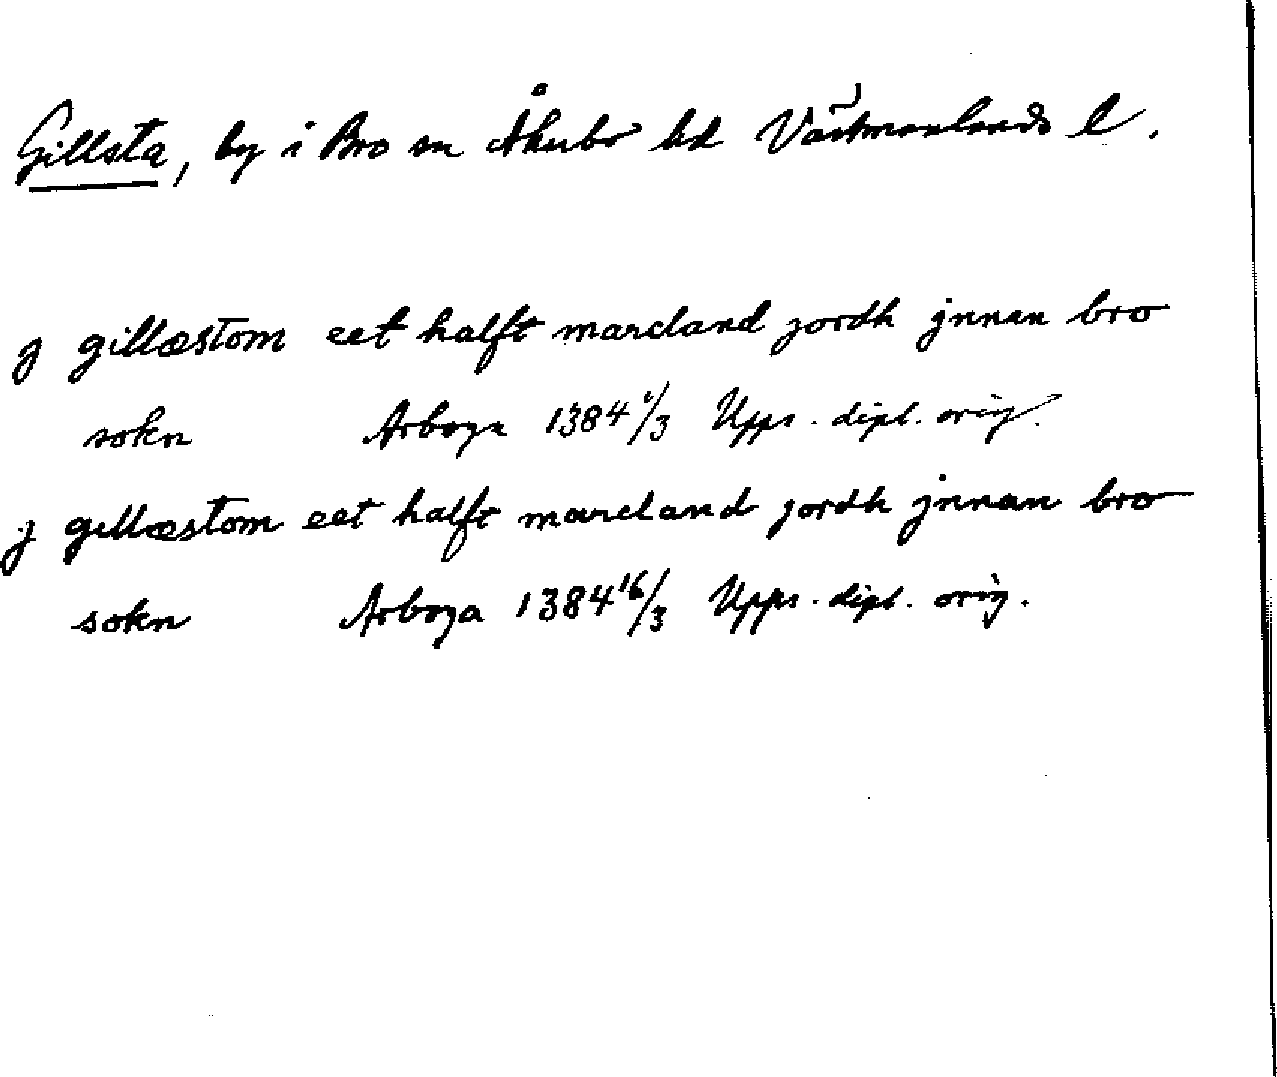 Gillsta, by i Bro sn Åkerbo hd Västmanlands l.
j gillæstom eet halft marcland jordh jnnan bro
sokn Arboga 1384 1/3 Upps. dipl. orig.
j gillæstom eet halft marcland jordh jnnan bro
sokn Arboga 1384 16/3 Upps. dipl. orig.